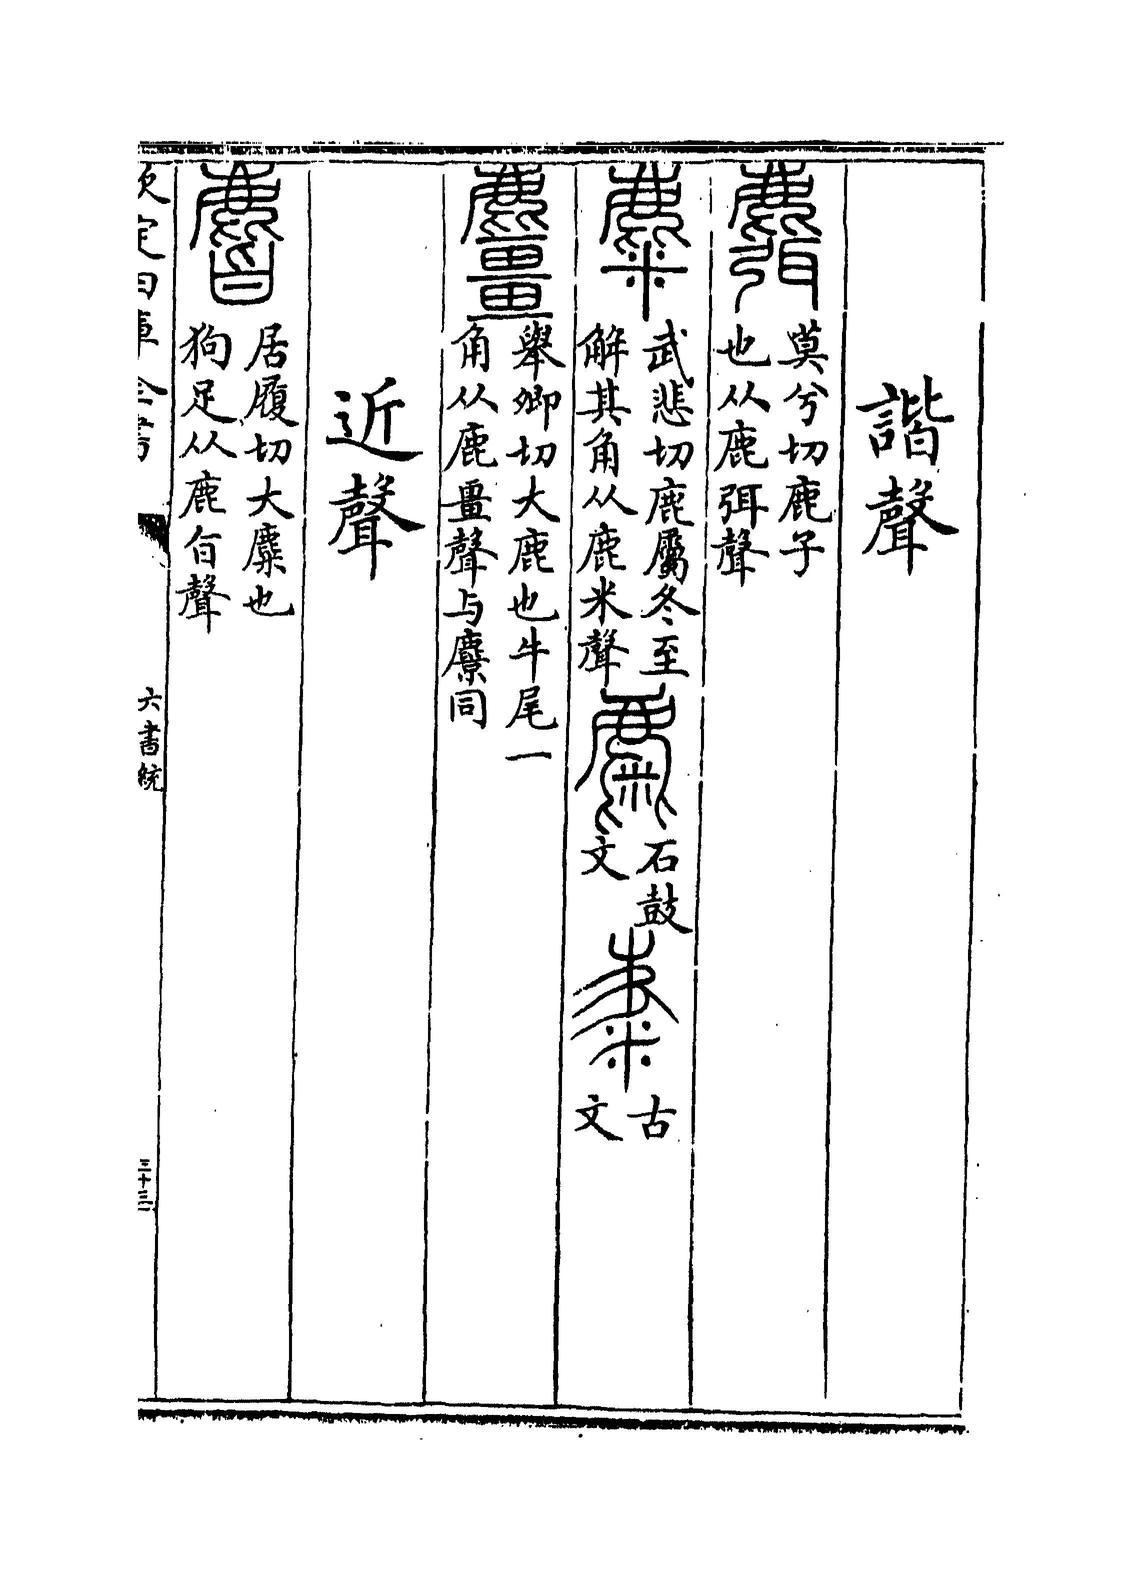 諧聲
莫兮切鹿子
也从鹿弭聲
麋
武悲切鹿屬冬至
解其角从鹿米聲
石鼓
文
古
文
麠
舉卿切大鹿也牛尾一
角从鹿畺聲与麖同
近聲
居履切大麋也
狗足从鹿旨聲
欽定四庫全書
六書統
三十三